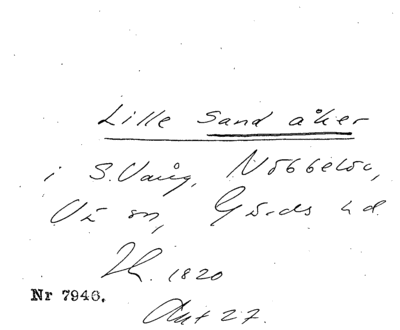 Lille Sand åker
i S. Vång, Nöbbelöv,
Gärds hd.
1820
Nr 7946.
Akt 27.